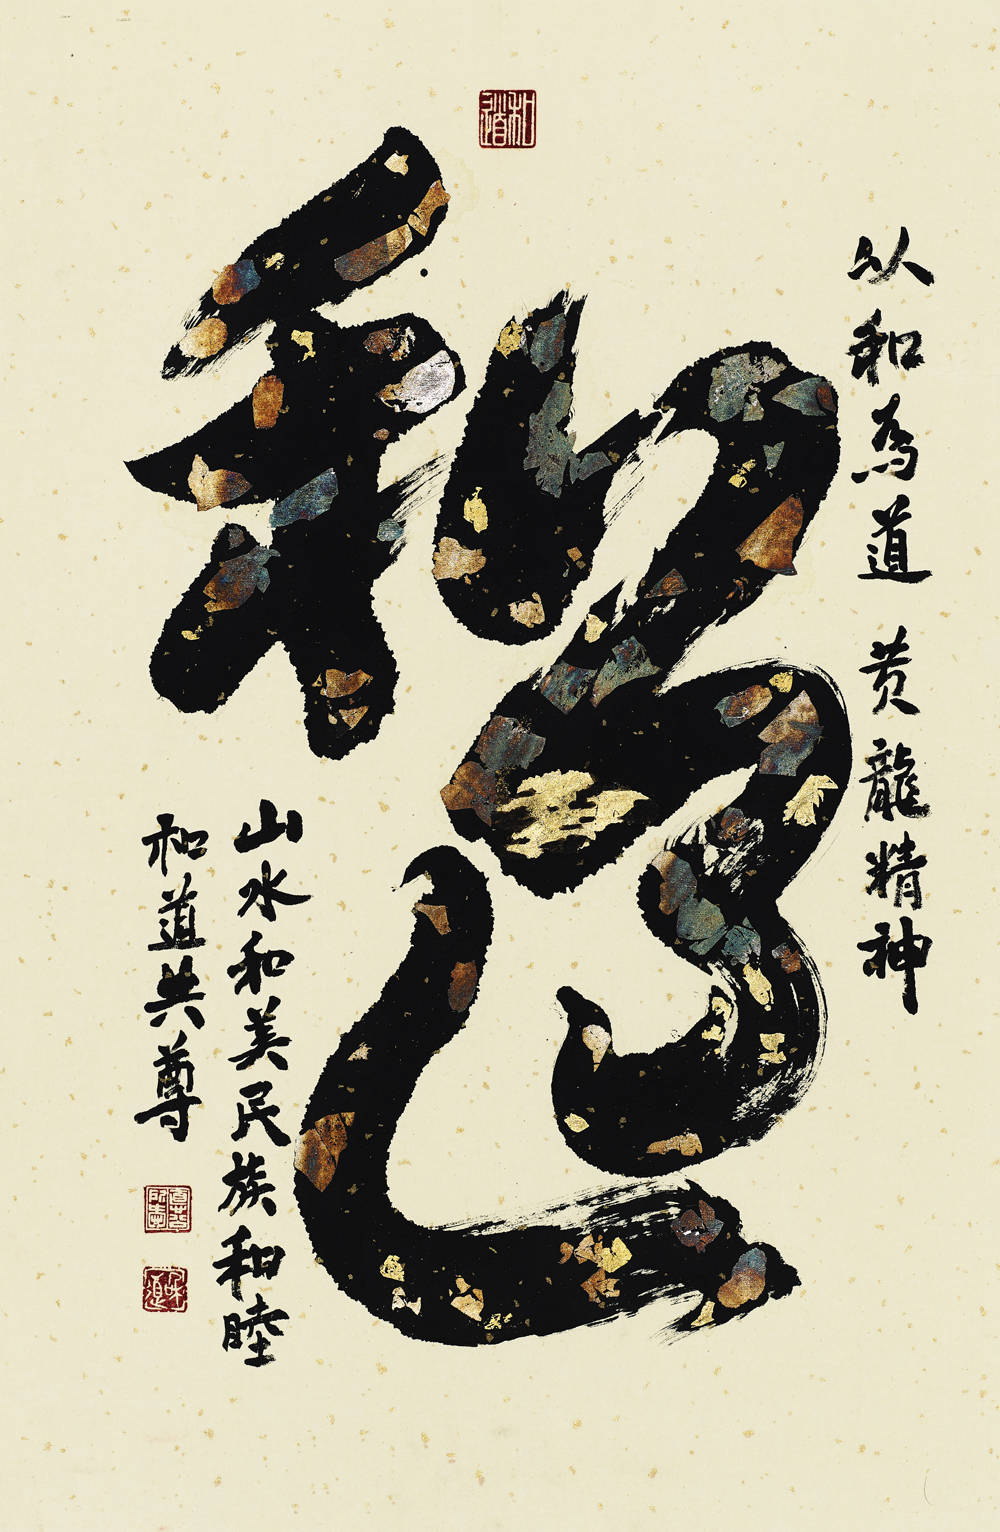 和道
以和為道 黄龍精神
和道
山水和美民族和睦
和道共尊